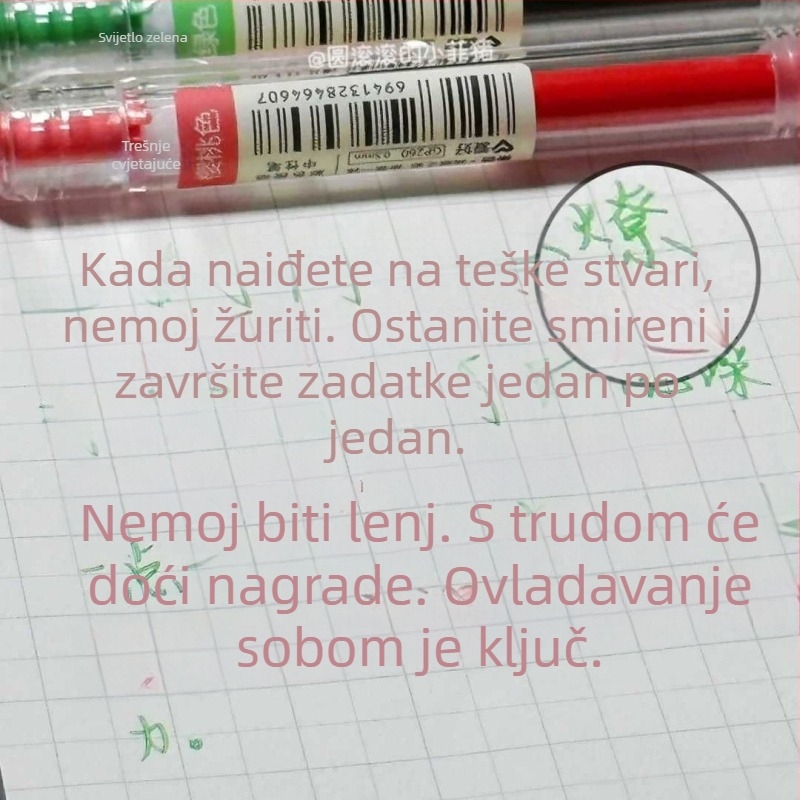 Svijetlo zelena
绿色
@圆滚滚的小菲猪
6941328464607
樱桃色
Trešnje
cvjetajuće
中性笔
GP260 0.5mm
爱好
燎
Kada naiđete na teške stvari,
nemoj žuriti. Ostanite smireni i
završite zadatke jedan po
jedan.
Nemoj biti lenj. S trudom će
doći nagrade. Ovladavanje
sobom je ključ.
力。